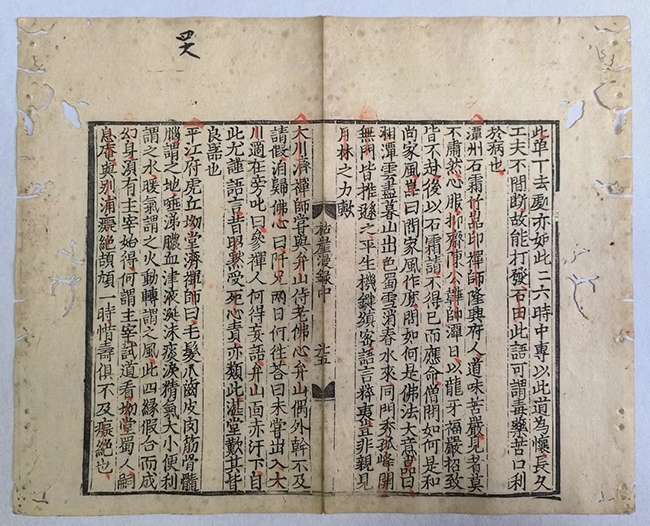 此單丁去處亦如此二六時中專以此道為懷長久
工夫不間斷故能打發石由此語可謂毒藥苦口利
於病也
潭州石霜竹嵒印禪師隆興府人道味苦嚴見者莫
不肅然心服抑齋陳公韡帥潭日以龍牙福嚴招致
皆不赴後以石霜請不得已而應命僧問如何是和
尚家風嵒曰問家風作麼問如何是佛法大意嵒曰
湘潭雲盡暮山出巴蜀雪消春水來同門秀孤峰開
無門皆推遜之平生機鍵縝密語言豈非親見
月林之力歟
枯崖漫錄中
大川濟禪師嘗與弁山侍老佛心弁山偶外幹不及
請假洎歸佛心曰阡兄兩日何往荅曰未嘗出入大
川適在旁叱曰參禪人何得妄語弁山面赤汗下自
此尤謹語言昔耶默受死心責亦類此滙堂歎其皆
良器也
平江府虎丘坳堂濟禪師曰毛髮爪齒皮肉筋骨髓
腦謂之地唾涕膿血津液涎沫痰淚精氣大小便利
謂之水暖氣謂之火動轉謂之風此四緣假合而成
幻身須有主宰始得何謂主宰試道看坳堂蜀人嗣
息菴與別浦癡絕頡頏一時惜壽俱不及癡絕也